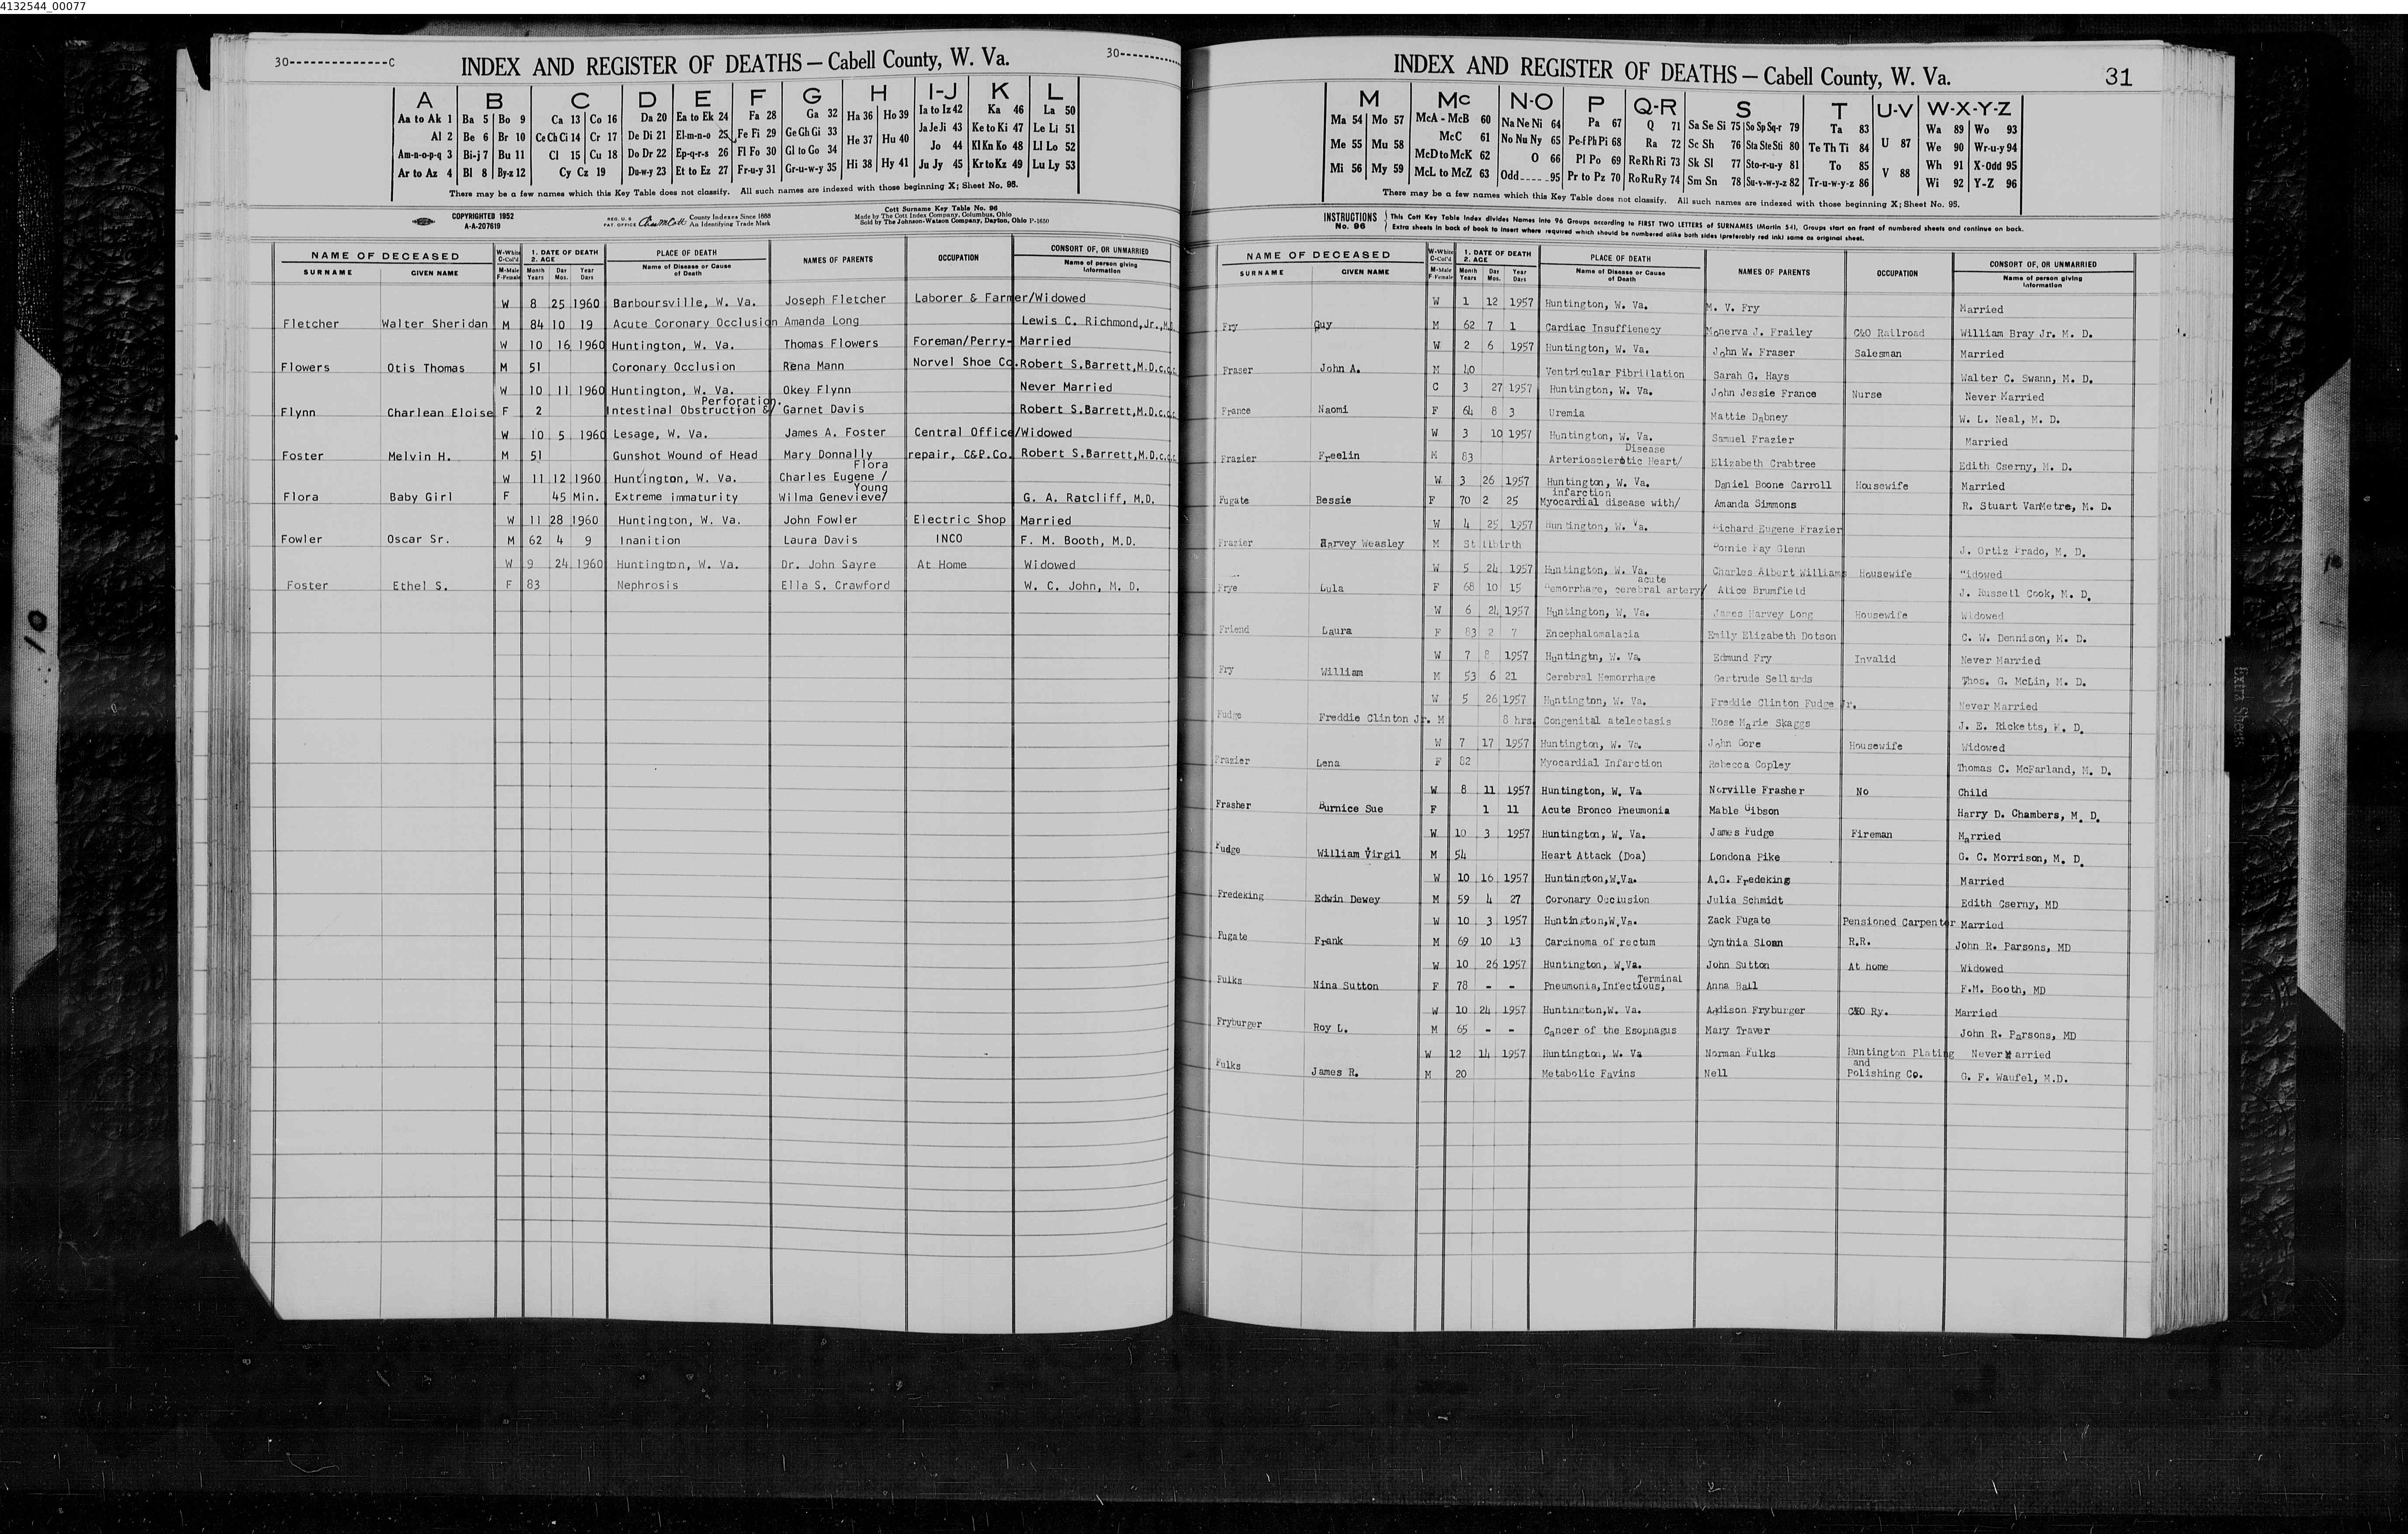 4132544_00077
30--------------C
30------------
INDEX AND REGISTER OF DEATHS — Cabell County, W. Va.
A B C D E F G H I-J K L
Aa to Ak 1 Ba 5 Bo 9 Ca 13 Co 16 Da 20 Ea to Ek 24 Fa 28 Ga 32 Ha 36 Ho 39 Ia to Iz 42 Ka 46 La 50
Al 2 Be 6 Br 10 Ce Ch Ci 14 Cr 17 De Di 21 El-m-n-o 25 Fe Fi 29 Ge Gh Gi 33 He 37 Hu 40 Ja Je Ji 43 Ke to Ki 47 Le Li 51
Am-n-o-p-q 3 Bi-j 7 Bu 11 Cl 15 Cu 18 Do Dr 22 Ep-q-r-s 26 Fl Fo 30 Gl to Go 34 Hi 38 Hy 41 Jo 44 Kl Kn Ko 48 Ll Lo 52
Ar to Az 4 Bl 8 By-z 12 Cy Cz 19 Du-w-y 23 Et to Ez 27 Fr-u-y 31 Gr-u-w-y 35 Ju Jy 45 Kr to Kz 49 Lu Ly 53
There may be a few names which this Key Table does not classify. All such names are indexed with those beginning X; Sheet No. 95.
COPYRIGHTED 1952
A-A-207619
REG. U. S. PAT. OFFICE County Indexes Since 1888 An Identifying Trade Mark
Cott Surname Key Table No. 96
Made by The Cott Index Company, Columbus, Ohio
Sold by The Johnson-Watson Company, Dayton, Ohio P-1650
NAME OF DECEASED W-White C-Col'd 1. DATE OF DEATH 2. AGE PLACE OF DEATH NAMES OF PARENTS OCCUPATION CONSORT OF, OR UNMARRIED
SURNAME GIVEN NAME M-Male F-Female Month Years Day Mos. Year Days Name of Disease or Cause of Death Name of person giving Information
W 8 25 1960 Barboursville, W. Va. Joseph Fletcher Laborer & Farmer/Widowed
Fletcher Walter Sheridan M 84 10 19 Acute Coronary Occlusion Amanda Long Lewis C. Richmond,Jr.,M.D.
W 10 16 1960 Huntington, W. Va. Thomas Flowers Foreman/Perry- Married
Flowers Otis Thomas M 51 Coronary Occlusion Rena Mann Norvel Shoe Co. Robert S.Barrett,M.D.c.c.
W 10 11 1960 Huntington, W. Va. Okey Flynn Never Married
Perforation.
Flynn Charlean Eloise F 2 Intestinal Obstruction &/ Garnet Davis Robert S.Barrett,M.D.c.c.
W 10 5 1960 Lesage, W. Va. James A. Foster Central Office/Widowed
Foster Melvin H. M 51 Gunshot Wound of Head Mary Donnally repair, C&P.Co. Robert S.Barrett,M.D.c.c.
Flora
W 11 12 1960 Huntington, W. Va. Charles Eugene /
Young
Flora Baby Girl F 45 Min. Extreme immaturity Wilma Genevieve/ G. A. Ratcliff, M.D.
W 11 28 1960 Huntington, W. Va. John Fowler Electric Shop Married
Fowler Oscar Sr. M 62 4 9 Inanition Laura Davis INCO F. M. Booth, M.D.
W 9 24 1960 Huntington, W. Va. Dr. John Sayre At Home Widowed
Foster Ethel S. F 83 Nephrosis Ella S. Crawford W. C. John, M. D.
INDEX AND REGISTER OF DEATHS — Cabell County, W. Va.
31
M Mc N-O P Q-R S T U-V W-X-Y-Z
Ma 54 Mo 57 McA - McB 60 Na Ne Ni 64 Pa 67 Q 71 Sa Se Si 75 So Sp Sq-r 79 Ta 83 U 87 Wa 89 Wo 93
Me 55 Mu 58 McC 61 No Nu Ny 65 Pe-f Ph Pi 68 Ra 72 Sc Sh 76 Sta Ste Sti 80 Te Th Ti 84 We 90 Wr-u-y 94
McD to McK 62 O 66 Pl Po 69 Re Rh Ri 73 Sk Sl 77 Sto-r-u-y 81 To 85 V 88 Wh 91 X-Odd 95
Mi 56 My 59 McL to McZ 63 Odd-----95 Pr to Pz 70 Ro Ru Ry 74 Sm Sn 78 Su-v-w-y-z 82 Tr-u-w-y-z 86 Wi 92 Y-Z 96
There may be a few names which this Key Table does not classify. All such names are indexed with those beginning X; Sheet No. 95.
INSTRUCTIONS No. 96
This Cott Key Table Index divides Names into 96 Groups according to FIRST TWO LETTERS of SURNAMES (Martin 54), Groups start on front of numbered sheets and continue on back.
Extra sheets in back of book to insert where required which should be numbered alike both sides (preferably red ink) same as original sheet.
NAME OF DECEASED W-White C-Col'd 1. DATE OF DEATH 2. AGE PLACE OF DEATH NAMES OF PARENTS OCCUPATION CONSORT OF, OR UNMARRIED
SURNAME GIVEN NAME M-Male F-Female Month Years Day Mos. Year Days Name of Disease or Cause of Death Name of person giving Information
W 1 12 1957 Huntington, W. Va. M. V. Fry Married
Fry Guy M 62 7 1 Cardiac Insuffienecy Monerva J. Frailey C&O Railroad William Bray Jr. M. D.
W 2 6 1957 Huntington, W. Va. John W. Fraser Salesman Married
Fraser John A. M 40 Ventricular Fibrillation Sarah G. Hays Walter C. Swann, M. D.
C 3 27 1957 Huntington, W. Va. John Jessie France Nurse Never Married
France Naomi F 64 8 3 Uremia Mattie Dabney W. L. Neal, M. D.
W 3 10 1957 Huntington, W. Va. Samuel Frazier Married
Disease
Frazier Freelin M 83 Arteriosclerotic Heart/ Elizabeth Crabtree Edith Cserny, M. D.
W 3 26 1957 Huntington, W. Va. Daniel Boone Carroll Housewife Married
infarction
Fugate Bessie F 70 2 25 Myocardial disease with/ Amanda Simmons R. Stuart VanMetre, M. D.
W 4 25 1957 Huntington, W. Va. Richard Eugene Frazier
Frazier Harvey Weasley M Stillbirth Fay Glenn J. Ortiz Prado, M. D.
W 5 24 1957 Huntington, W. Va. Charles Albert Williams Housewife Widowed
acute
Frye Lula F 68 10 15 Hemorrhage, cerebral artery/ Alice Brumfield J. Russell Cook, M. D.
W 6 24 1957 Huntington, W. Va. James Harvey Long Housewife Widowed
Friend Laura F 83 2 7 Encephalomalacia Emily Elizabeth Dotson C. W. Dennison, M. D.
W 7 8 1957 Huntingtn, W. Va. Edmund Fry Invalid Never Married
Fry William M 53 6 21 Cerebral Hemorrhage Gertrude Sellards Thos. G. McLin, M. D.
W 5 26 1957 Huntington, W. Va. Freddie Clinton Fudge Jr. Never Married
Fudge Freddie Clinton Jr. M 8 hrs Congenital atelectasis Rose Marie Skaggs J. E. Ricketts, M. D.
W 7 17 1957 Huntington, W. Va. John Gore Housewife Widowed
Frazier Lena F 82 Myocardial Infarction Rebecca Copley Thomas C. McFarland, M. D.
W 8 11 1957 Huntington, W. Va Norville Frasher No Child
Frasher Burnice Sue F 1 11 Acute Bronco Pneumonia Mable Gibson Harry D. Chambers, M. D.
W 10 3 1957 Huntington, W. Va. James Fudge Fireman Married
Fudge William Virgil M 54 Heart Attack (Doa) Londona Pike G. C. Morrison, M. D.
W 10 16 1957 Huntington,W.Va. A.G. Fredeking Married
Fredeking Edwin Dewey M 59 4 27 Coronary Occlusion Julia Schmidt Edith Cserny, MD
W 10 3 1957 Huntington,W.Va. Zack Fugate Pensioned Carpenter Married
Fugate Frank M 69 10 13 Carcinoma of rectum Cynthia Sloan R.R. John R. Parsons, MD
W 10 26 1957 Huntington, W.Va. John Sutton At home Widowed
Terminal
Fulks Nina Sutton F 78 - - Pneumonia,Infectious, Anna Ball F.M. Booth, MD
W 10 24 1957 Huntington,W. Va. Addison Fryburger C&O Ry. Married
Fryburger Roy L. M 65 - - Cancer of the Esophagus Mary Traver John R. Parsons, MD
W 12 14 1957 Huntington, W. Va Norman Fulks Huntington Plating Never Married
and
Fulks James R. M 20 Metabolic Favins Nell Polishing Co. G. F. Waufel, M.D.
Extra Sheets
10
10